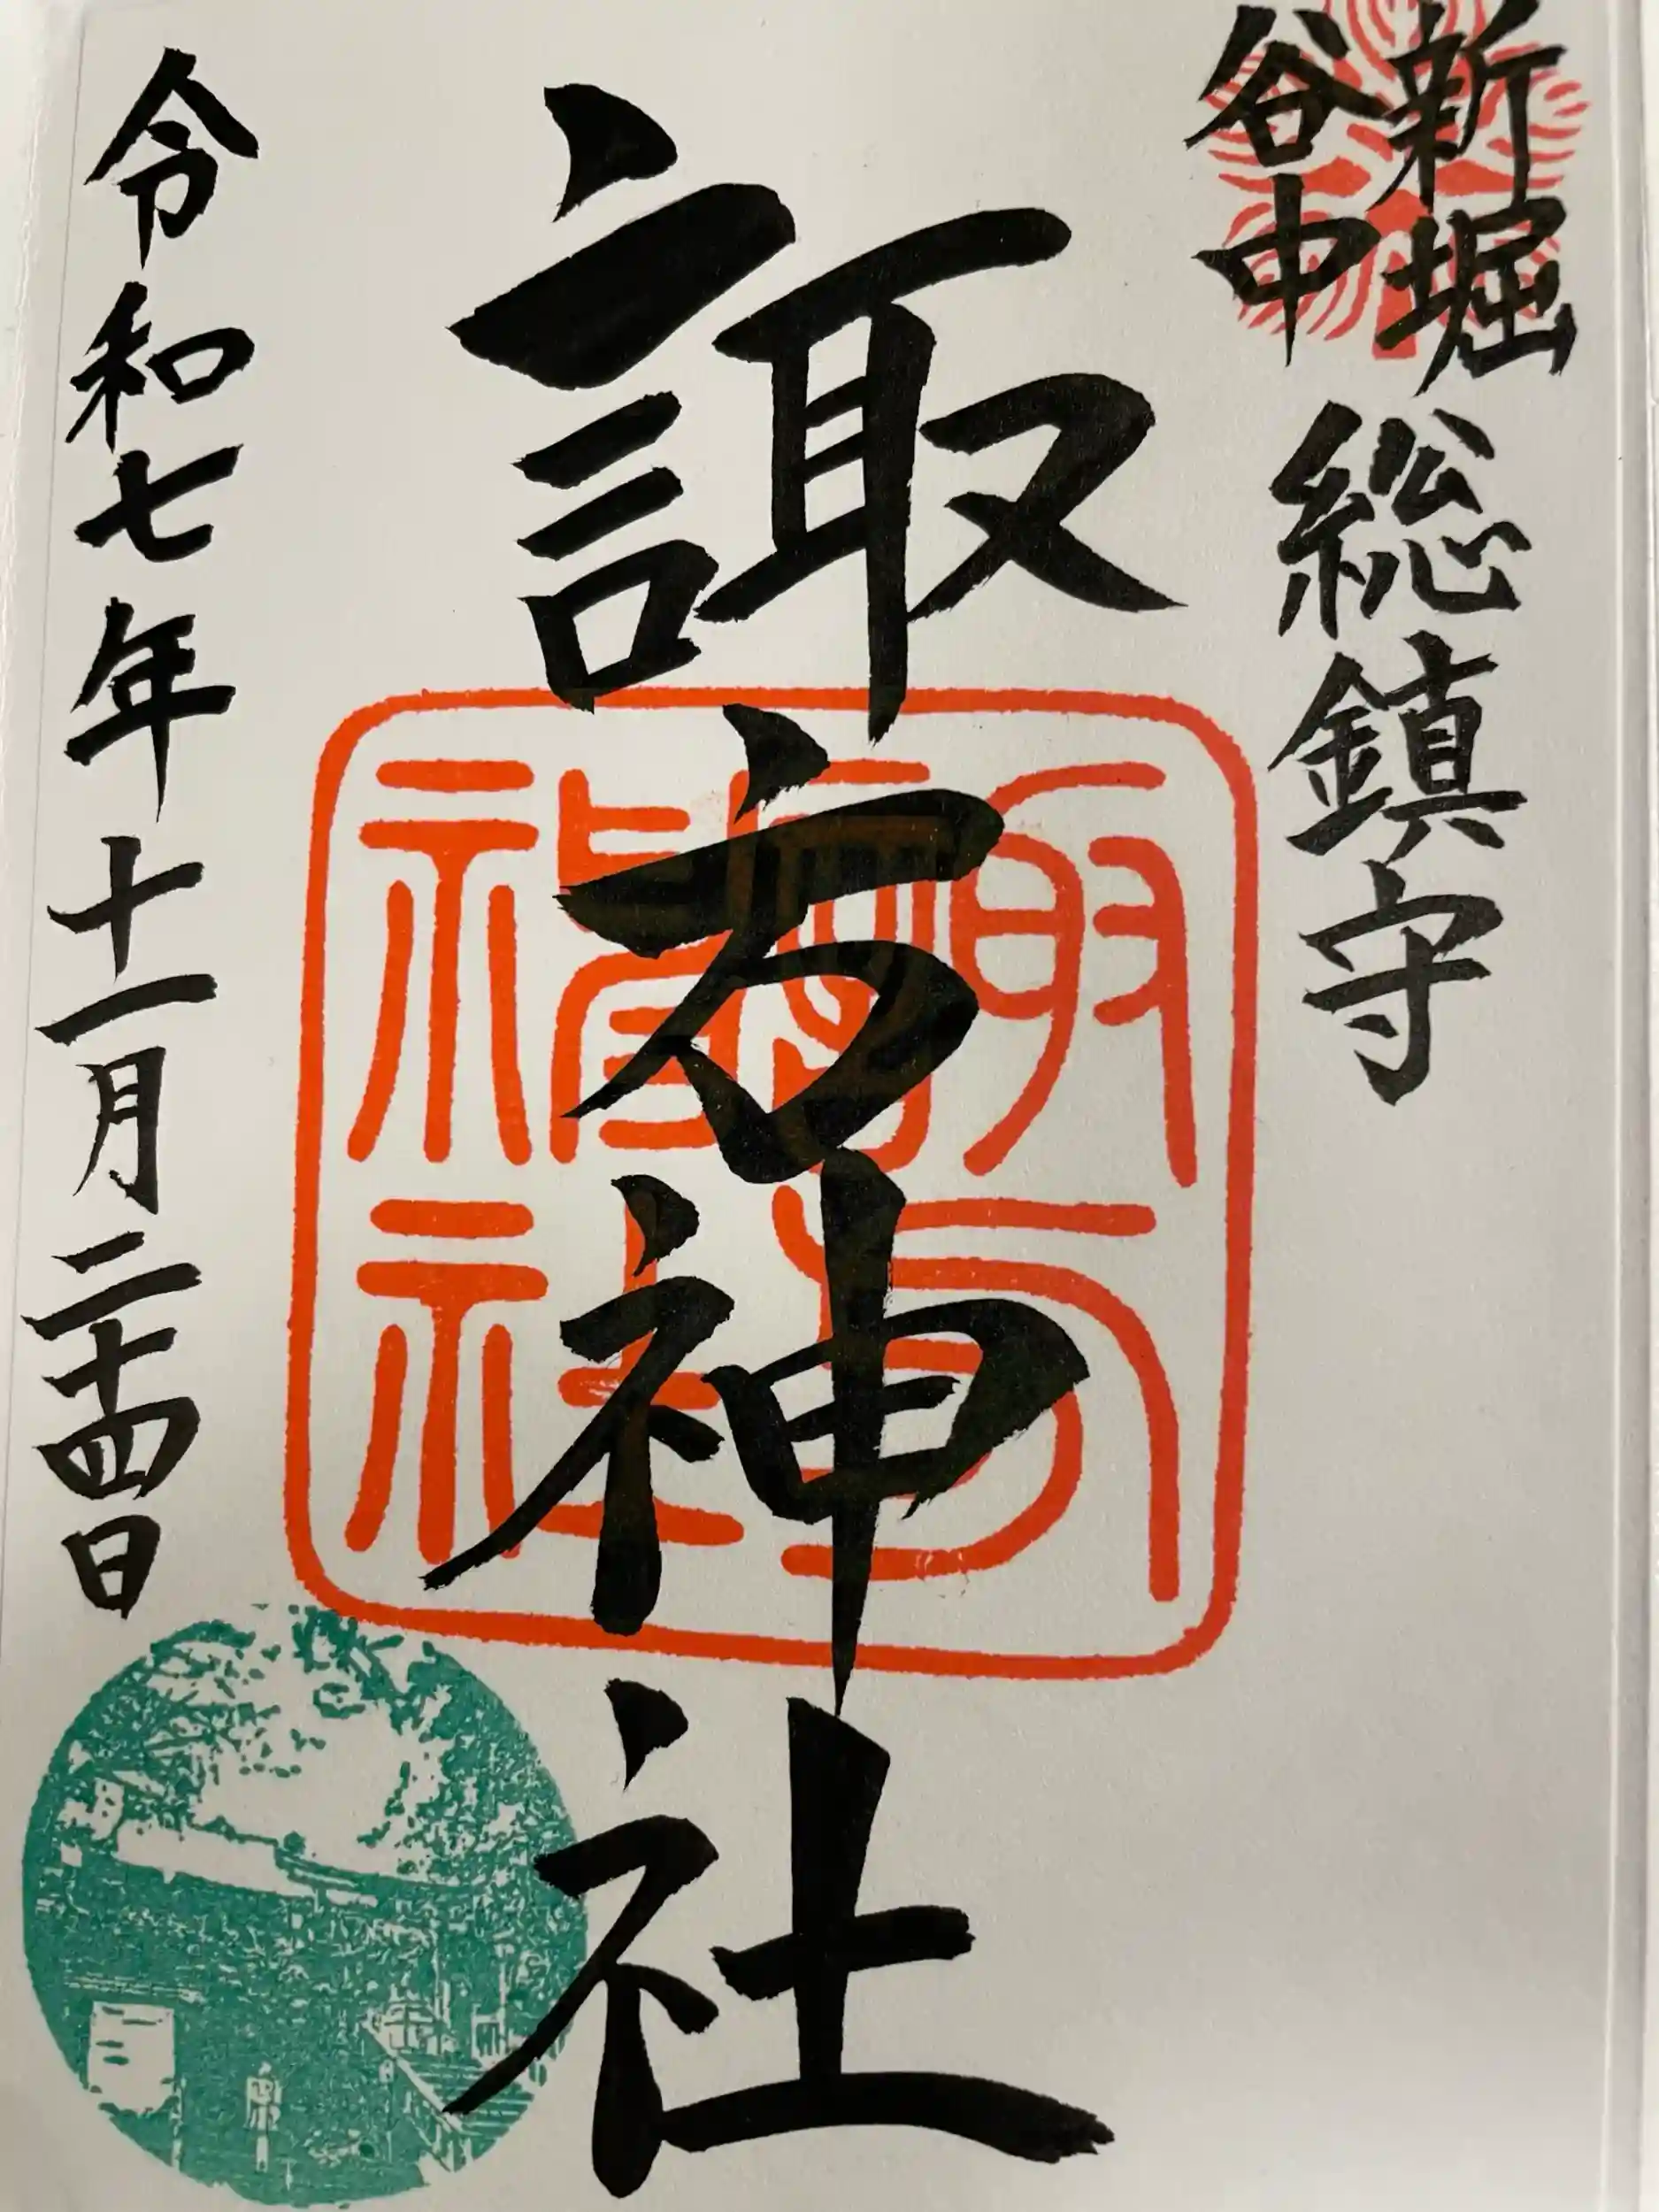 新堀
谷中
総鎮守
諏方神社
令和七年十一月二十四日